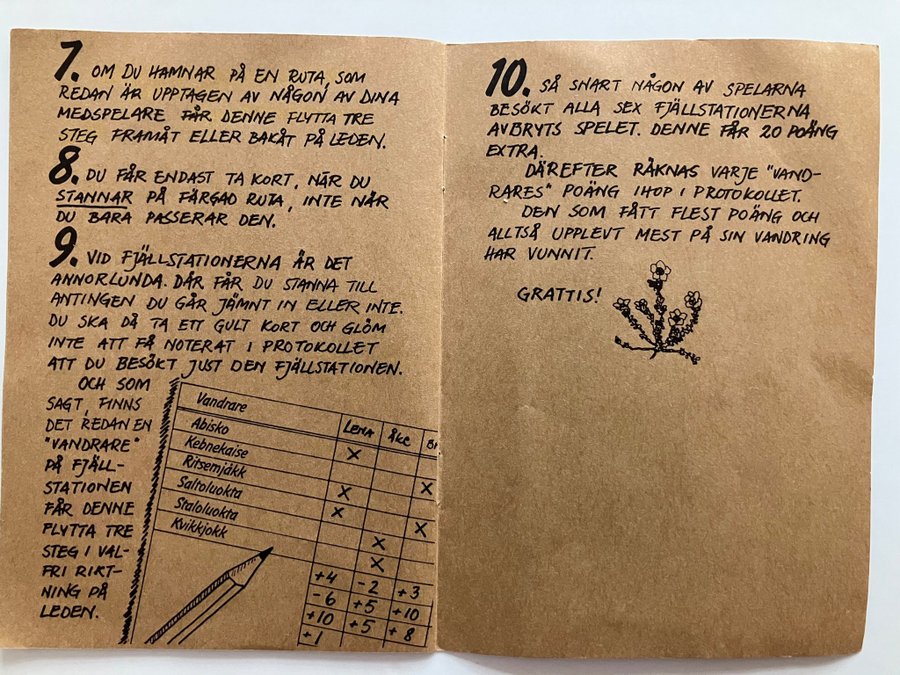 7. OM DU HAMNAR PÅ EN RUTA, SOM
REDAN ÄR UPPTAGEN AV NÅGON AV DINA
MEDSPELARE FÅR DENNE FLYTTA TRE
STEG FRAMÅT ELLER BAKÅT PÅ LEDEN.
8. DU FÅR ENDAST TA KORT, NÄR DU
STANNAR PÅ FÄRGAD RUTA, INTE NÄR
DU BARA PASSERAR DEN.
9. VID FJÄLLSTATIONERNA ÄR DET
ANNORLUNDA. DÄR FÅR DU STANNA TILL
ANTINGEN DU GÅR JÄMNT IN ELLER INTE.
DU SKA DÅ TA ETT GULT KORT OCH GLÖM
INTE ATT FÅ NOTERAT I PROTOKOLLET
ATT DU BESÖKT JUST DEN FJÄLLSTATIONEN.
OCH SOM
SAGT, FINNS
DET REDAN EN
"VANDRARE"
PÅ FJÄLL-
STATIONEN
FÅR DENNE
FLYTTA TRE
STEG I VAL-
FRI RIKT-
NING PÅ
LEDEN.
Vandrare LENA ÅKE
Abisko X
Kebnekaise X
Ritsemjåkk X
Saltoluokta X X
Staloluokta X
Kvikkjokk X
+4 -2 +3
-6 +5 +10
+10 +5 +8
+1
10. SÅ SNART NÅGON AV SPELARNA
BESÖKT ALLA SEX FJÄLLSTATIONERNA
AVBRYTS SPELET. DENNE FÅR 20 POÄNG
EXTRA.
DÄREFTER RÄKNAS VARJE "VAND-
RARES" POÄNG IHOP I PROTOKOLLET.
DEN SOM FÅTT FLEST POÄNG OCH
ALLTSÅ UPPLEVT MEST PÅ SIN VANDRING
HAR VUNNIT.
GRATTIS!